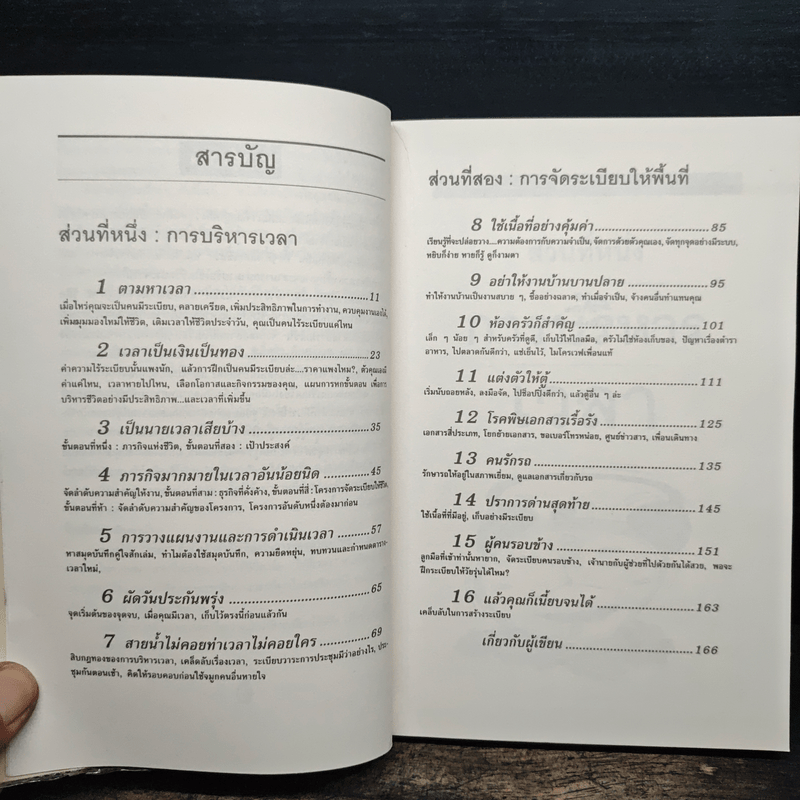 สารบัญ
ส่วนที่หนึ่ง : การบริหารเวลา
1 ตามหาเวลา 11
เมื่อไหร่คุณจะเป็นคนมีระเบียบ, คลายเครียด, เพิ่มประสิทธิภาพในการทำงาน, ควบคุมงานเอกได้,
เพิ่มมุมมองใหม่ให้ชีวิต, เติมเวลาให้ชีวิตประจำวัน, คุณเป็นคนไร้ระเบียบแค่ไหน
2 เวลาเป็นเงินเป็นทอง 23
ค่าความไร้ระเบียบนั้นแพงนัก, แล้วการฝึกเป็นคนมีระเบียบล่ะ....ราคาแพงไหม?, ตัวคุณเองมี
ค่าแค่ไหน, เวลาหายไปไหน, เลือกโอกาสและกิจกรรมของคุณ, แผนการหกขั้นตอน เพื่อการ
บริหารชีวิตอย่างมีประสิทธิภาพ...และเวลาที่เพิ่มขึ้น
3 เป็นนายเวลาเสียบ้าง 35
ขั้นตอนที่หนึ่ง : ภารกิจแห่งชีวิต, ขั้นตอนที่สอง : เป้าประสงค์
4 ภารกิจมากมายในเวลาอันน้อยนิด 45
จัดลำดับความสำคัญให้งาน, ขั้นตอนที่สาม : ธุรกิจที่คั่งค้าง, ขั้นตอนที่สี่ : โครงการจัดระเบียบให้ชีวิต,
ขั้นตอนที่ห้า : จัดลำดับความสำคัญของโครงการ, โครงการอันดับหนึ่งต้องมาก่อน
5 การวางแผนงานและการดำเนินเวลา 57
หาสมุดบันทึกคู่ใจสักเล่ม, ทำไมต้องใช้สมุดบันทึก, ความยืดหยุ่น, ทบทวนและกำหนดตาราง-
เวลาใหม่,
6 ผัดวันประกันพรุ่ง 65
จุดเริ่มต้นของจุดจบ, เมื่อคุณมีเวลา, เก็บไว้ตรงนี้ก่อนแล้วกัน
7 สายน้ำไม่คอยท่าเวลาไม่คอยใคร 69
สิบกฎทองของการบริหารเวลา, เคล็ดลับเรื่องเวลา, ระเบียบวาระการประชุมมีว่าอย่างไร, ประ-
ชุมกันตอนเช้า, คิดให้รอบคอบก่อนใช้จมูกคนอื่นหายใจ
ส่วนที่สอง : การจัดระเบียบให้พื้นที่
8 ใช้เนื้อที่อย่างคุ้มค่า 85
เรียนรู้ที่จะปล่อยวาง...ความต้องการกับความจำเป็น, จัดการด้วยตัวคุณเอง, จัดทุกจุดอย่างมีระบบ,
หยิบก็ง่าย หายก็รู้ ดูก็งามตา
9 อย่าให้งานบ้านบานปลาย 95
ทำให้งานบ้านเป็นงานสบาย ๆ, ซื้ออย่างฉลาด, ทำเมื่อจำเป็น, จ้างคนอื่นทำแทนคุณ
10 ห้องครัวก็สำคัญ 101
เล็ก ๆ น้อย ๆ สำหรับครัวที่ดูดี, เก็บไว้ให้ใกล้มือ, ครัวไม่ใช่ห้องเก็บของ, ปัญหาเรื่องตำรา
อาหาร, ไปตลาดกันดีกว่า, แช่เย็นไว้, ไมโครเวฟเพื่อนแท้
11 แต่งตัวให้ตู้ 111
เริ่มนับถอยหลัง, ลงมือจัด, ไปช็อปปิ้งดีกว่า, แล้วตู้อื่น ๆ ล่ะ
12 โรคพิษเอกสารเรื้อรัง 125
เอกสารสี่ประเภท, โยกย้ายเอกสาร, ขอเบอร์โทรหน่อย, ศูนย์ข่าวสาร, เพื่อนเดินทาง
13 คนรักรถ 135
รักษารถให้อยู่ในสภาพเยี่ยม, ดูแลเอกสารเกี่ยวกับรถ
14 ปราการด่านสุดท้าย 145
ใช้เนื้อที่ที่มีอยู่, เก็บอย่างมีระเบียบ
15 ผู้คนรอบข้าง 151
ลูกมือที่เข้าท่านั้นหายาก, จัดระเบียบคนรอบข้าง, เจ้านายกับผู้ช่วยที่ไปด้วยกันได้สวย, พอจะ
ฝึกระเบียบให้วัยรุ่นได้ไหม?
16 แล้วคุณก็เนี้ยบจนได้ 163
เคล็บลับในการสร้างระเบียบ
เกี่ยวกับผู้เขียน 166